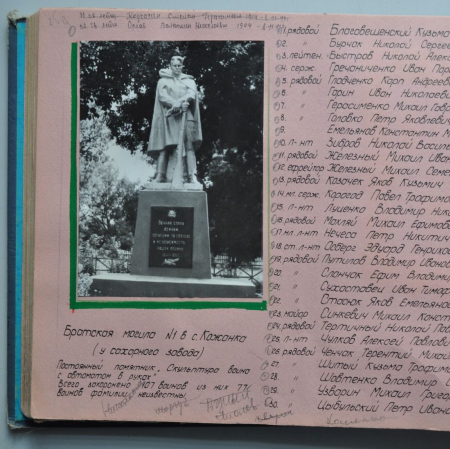 Братская могила №1 в с. Кожанка
(у сахарного завода)
Постоянный памятник, Скульптура воина
с автоматом в руках".
Всего захоронено 107 воинов из них 77
воинов фамилии неизвестны
1. рядовой Благовещенский Кузьмо
2. " Бурчак Николай Сергее
3. лейтен. Быстров Николай Алекс
4. серж. Гречаниченко Иван Пор
5. рядовой Гладченко Карп Андрее
6. " Горин Иван Николаевич
7. " Герасименко Михаил Гавр
8. " Головко Петр Яковлевич
9. Емельянов Константин М
10. л-нт Зибров Николай Василь
11. рядовой Железный Михаил Иван
12. ефрейтор Железный Михаил Семе
13. рядовой Казачек Яков Кузьмич
14. мл. серж. Корогод Павел Трофимо
15. л-нт Луценко Владимир Ник
16. рядовой Махляй Михаил Ефимов
17. мл. л-нт Нечесо Петр Никитич
18. ст. л-нт Эдуард
19. рядовой Путилов Владимир Иванов
20. " Слончак Ефим Владимир
21. " Сухоставец Иван Тимо
22. " Стасюк Яков Емельяно
23. майор Синкевич Михаил Конст
24. рядовой Тертичный Николай Пав
25. л-нт Чулков Алексей Павлови
26. рядовой Ченчак Терентий Михай
27. " Шитый Кузьма Трофим
28. " Шавтенко Владимир
29. " Узварин Михаил Григо
30. " Цыбульский Петр Ивано